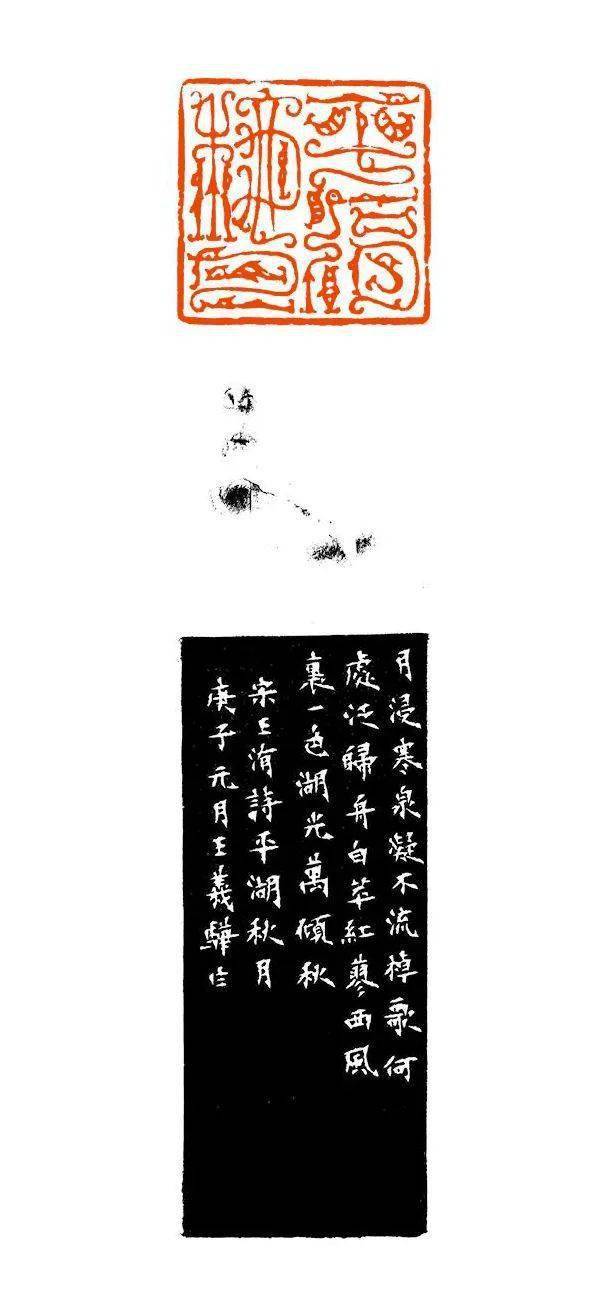 平湖秋月
月浸寒泉凝不流棹歌何
處泛歸舟白苹紅蓼西風
裏一色湖光萬傾秋
宋王洧詩平湖秋月
庚子元月王義驊作